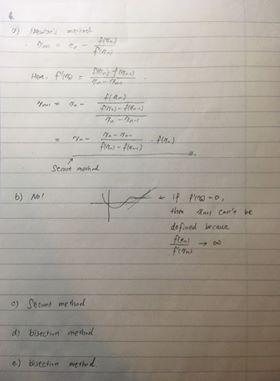 a) Newton's method
xn+1 = xn - f(xn)/f'(xn)
Here, f'(xn) = f(xn)-f(xn-1)/xn-xn-1
xn+1 = xn - f(xn)/f(xn)-f(xn-1)/xn-xn-1
= xn - xn-xn-1/f(xn)-f(xn-1) · f(xn)
Secant method
b) No! ← if f'(xn)=0,
then xn+1 can't be
defined because
f(xn)/f'(xn) → ∞
c) Secant method
d) bisection method
e) bisection method.